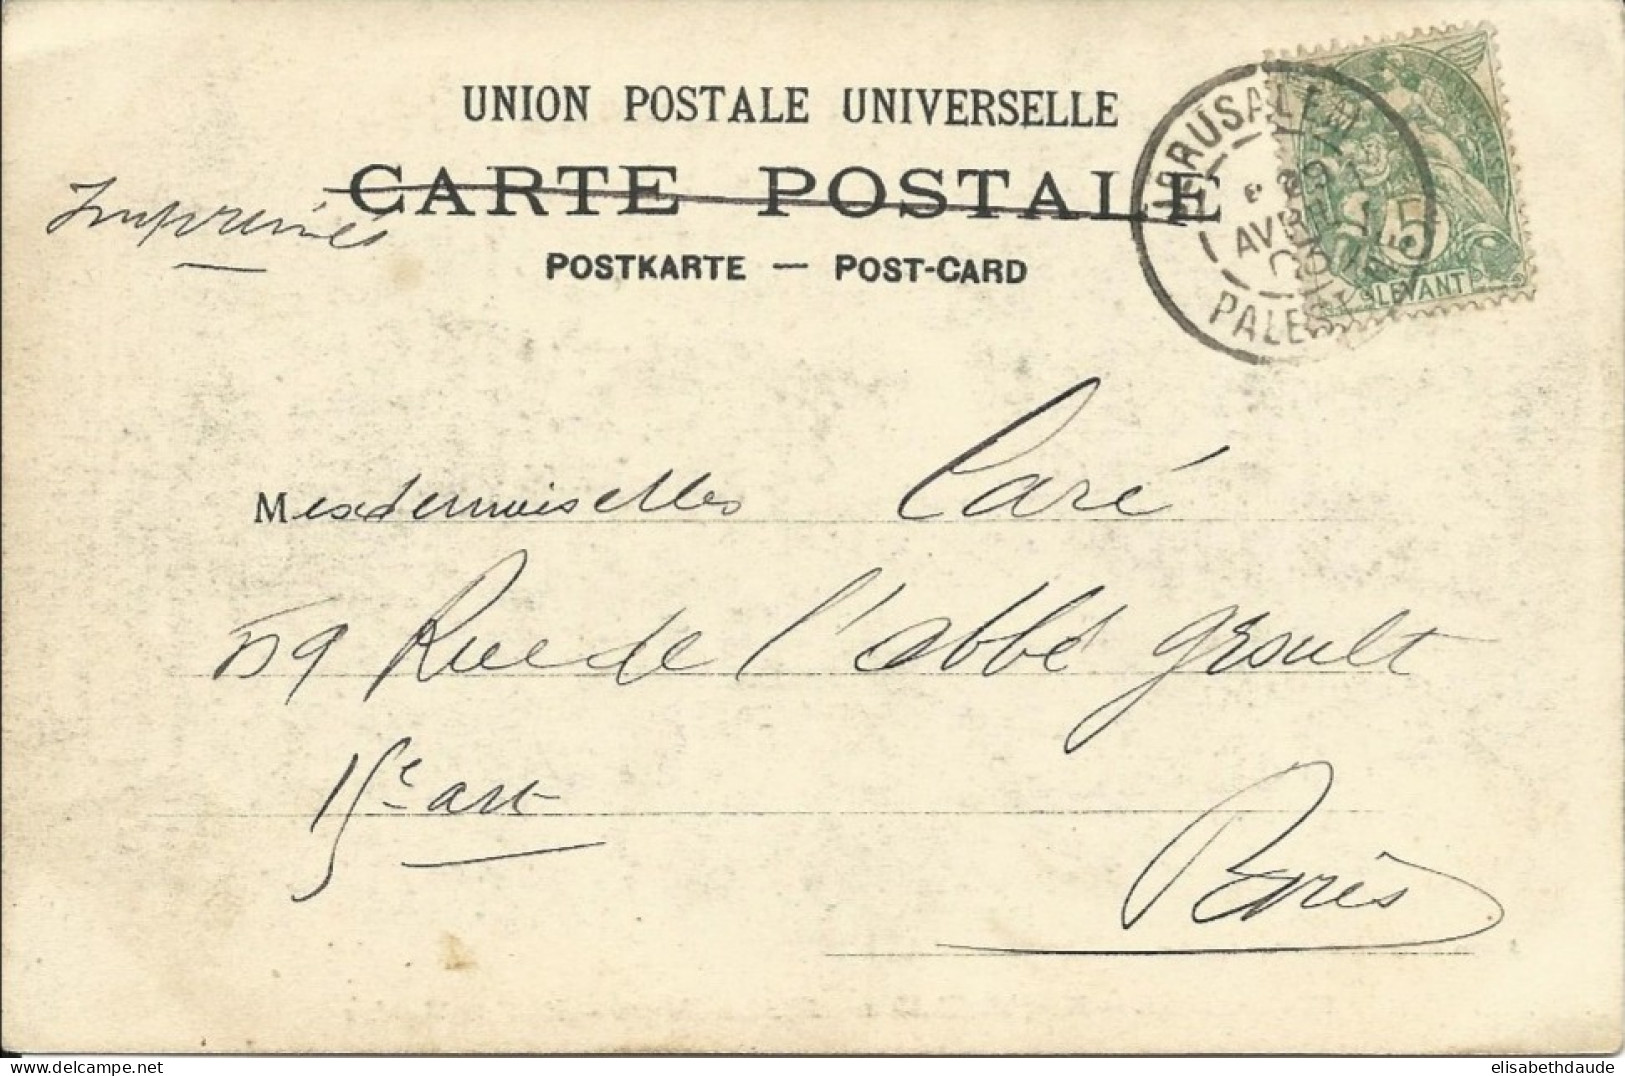 UNION POSTALE UNIVERSELLE
CARTE POSTALE
Imprimés
POSTKARTE — POST-CARD
JERUSALEM
AVRIL
PALESTINE
5
LEVANT
Mesdemoiselles Caré
59 Rue de l'abbé Groult
15e art
Paris
elisabethdaude